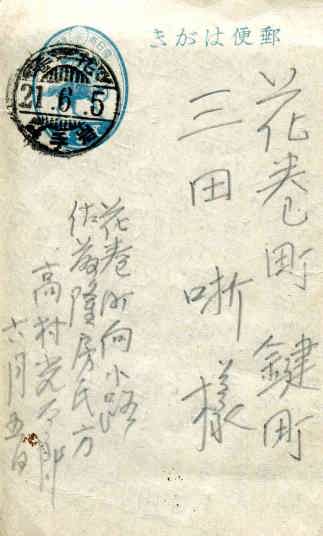 郵便はがき
花巻
21.6.5
岩手
花巻町 鍵町
三田 哳 様
花巻町向小路
佐藤隆房氏方
高村光太郎
六月五日